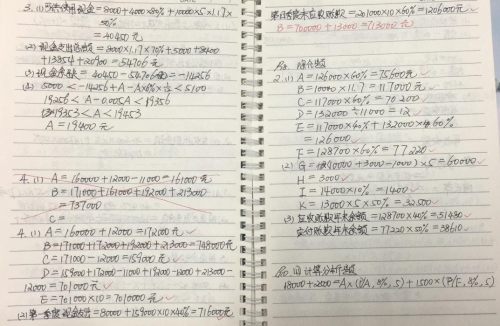 3. (1) 可供使用现金 = 8000+4000×80%+10000×5×1.17×
50%
= 40450元
(2) 现金支出总额 = 8000×1.17×70%+5000+8400
+13854+20900 = 54706元
(3) 现金余缺 = 40455-54706 = -14256
(4) 5000 < -14256+A-A×6%× < 5100
19256 < A-0.005A < 19356
19353 < A < 19453
A = 19400元
4.(1) A = 160000+12000-11000 = 161000元
B = 171000+161000+192000+213000
= 737000
C =
4. (1) A = 160000+12000 = 172000元
B = 171000+172000+192000+213000 = 748000元
C = 171000-12000 = 159000元
D = 159000+172000-11000+192000-12000+213000-
12000 = 701000元
E = 701000×10 = 7010000元
(2) 第一季度 = 80000+159000×10×40% = 716000元
末应收账款 = 201000×10×60% = 1206000元
B = 700000+13000 = 713000元
综合题
2. (1) A = 126000×60% = 75600元
B = 10000×11.7 = 117000元
C = 117000×60% = 70200
D = 132000÷11000 = 12
E = 117000×40%+132000×60%
= 126000
F = 128700×60% = 77220
(2) G = (10000+3000-1000)×5 = 60000
H = 3000
I = 14000×10% = 1400
K = 13000×5×50% = 32500
(3) 应收账款年末余额 = 128700×40% = 51480
应付账款年末余额 = 77220×50% = 38610
计算分析题
18000+2000 = A×(P/A, 4%, 5)+1500×(P/F, 4%, 5)